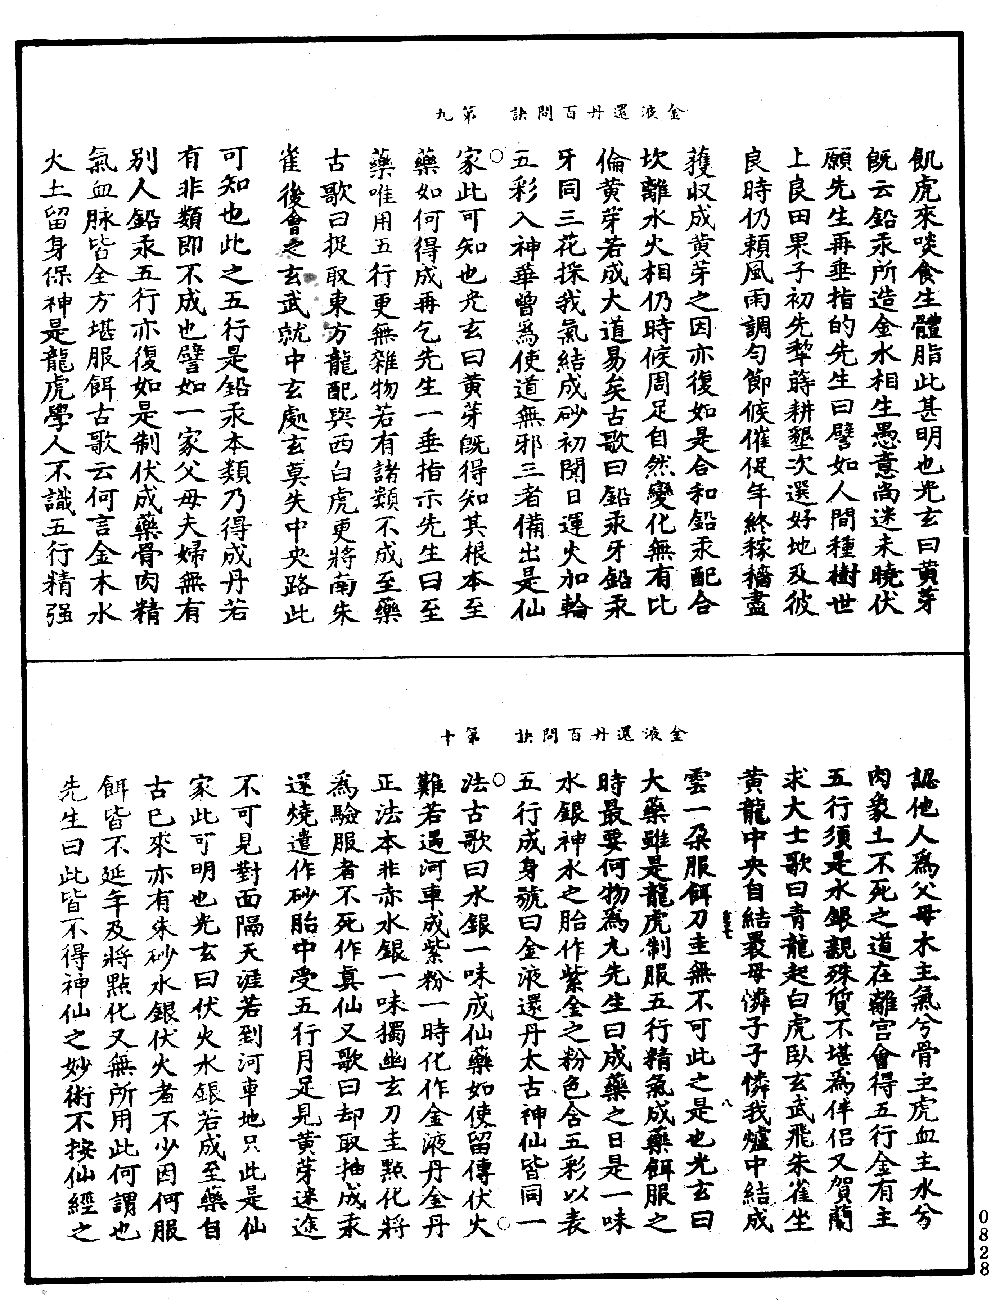 金液還丹百問訣　第九
飢虎來啖食生體脂此甚明也光玄曰黃芽
既云鉛汞所造金水相生愚意尚迷未曉伏
願先生再垂指的先生曰譬如人間種樹世
上良田果子初先犁蒔耕墾次選好地及彼
良時仍賴風雨調勻節候催促年終稼穡盡
獲收成黃芽之因亦復如是合和鉛汞配合
坎離水火相仍時候周足自然變化無有比
倫黃芽若成大道易矣古歌曰鉛汞牙鉛汞
牙同三花採我氣結成砂初聞日運火加輪
五彩入神華曾為使道無邪三者備出是仙
家此可知也光玄曰黃芽既得知其根本至
藥如何得成再乞先生一垂指示先生曰至
藥唯用五行更無雜物若有諸類不成至藥
古歌曰捉取東方龍配與西白虎更將南朱
雀後會之玄武就中玄處玄莫失中央路此
可知也此之五行是鉛汞本類乃得成丹若
有非類即不成也譬如一家父母夫婦無有
別人鉛汞五行亦復如是制伏成藥骨肉精
氣血脉皆全方堪服餌古歌云何言金木水
火土留身保神是龍虎學人不識五行精强
金液還丹百問訣　第十
認他人為父母木主氣兮骨主虎血主水兮
肉象土不死之道在離宮會得五行金有主
五行須是水銀親殊質不堪為伴侶又賀蘭
求大士歌曰青龍起白虎臥玄武飛朱雀坐
黃龍中央自結裹母憐子子憐我爐中結成
雲一朶服餌刀圭無不可此之是也光玄曰
大藥雖是龍虎制服五行精氣成藥餌服之
時最要何物為九先生曰成藥之日是一味
水銀神水之胎作紫金之粉色含五彩以表
五行成身號曰金液還丹太古神仙皆同一
法古歌曰水銀一味成仙藥如使留傳伏火
難若遇河車成紫粉一時化作金液丹金丹
正法本非赤水銀一味獨幽玄刀圭點化將
為驗服者不死作真仙又歌曰却取抽成汞
還燒遣作砂胎中受五行月足見黃芽迷途
不可見對面隔天涯若到河車地只此是仙
家此可明也光玄曰伏火水銀若成至藥自
古已來亦有朱砂水銀伏火者不少因何服
餌皆不延年及將點化又無所用此何謂也
先生曰此皆不得神仙之妙術不按仙經之
八
0828